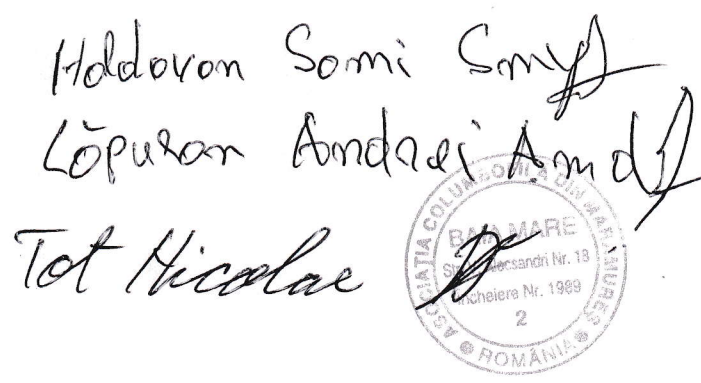 Holdovan Somi
Lăpușan Andrei
Tot Nicolae
ASOCIAȚIA COLUMBOFILĂ DIN MARAMUREȘ
BAIA MARE
Alecsandri Nr. 18
Încheiere Nr. 1989
2
ROMÂNIA